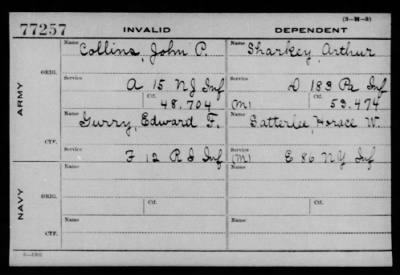 (3-M-3)
77257 INVALID DEPENDENT
ARMY
ORIG.
Name Collins, John P. Name Sharkey Arthur
Service A 15 NJ Inf Service D 183 Pa Inf
Ctf. 48,704 (M) Ctf. 53.474
CTF.
Name Gurry, Edward F. Name Satterlee, Horace W.
Service F 12 R I Inf Service (M) E 86 NY Inf
NAVY
ORIG.
Name Name
Service Ctf. Service Ctf.
CTF.
Name Name